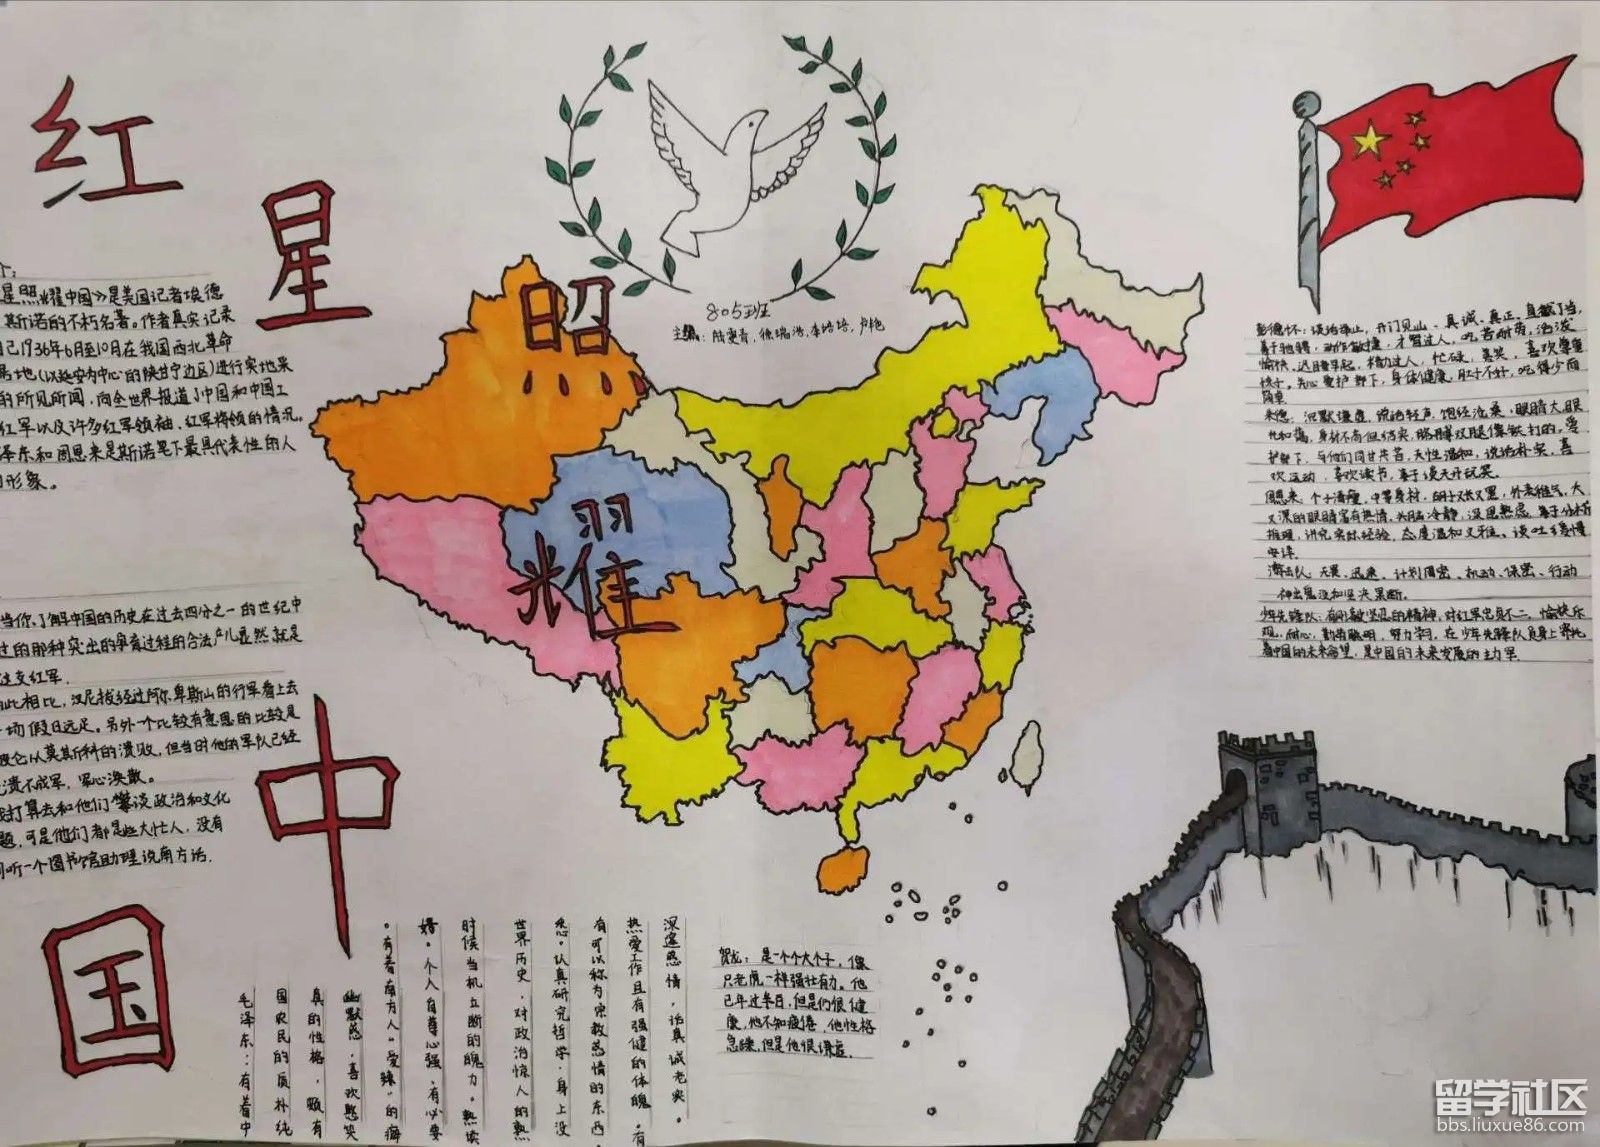 红
星
照
耀
中
国
805班
主编：
星照耀中国》是美国记者埃德
斯诺的不朽名著。作者真实记录
己1936年6月至10月在我国西北革命
居地(以延安为中心的陕甘宁边区)进行实地采
的所见所闻，向全世界报道了中国和中国工
红军以及许多红军领袖、红军将领的情况。
泽东和周恩来是斯诺笔下最具代表性的人
形象。
当你了解中国的历史在过去四分之一的世纪中
过的那种突出的孕育过程的合法产儿显然就是
这支红军.
此相比，汉尼拔经过阿尔卑斯山的行军看上去
一场假日远足。另外一个比较有意思的比较是
破仑从莫斯科的溃败，但当时他的军队已经
溃不成军，军心涣散。
打算去和他们攀谈政治和文化
题，可是他们都是些大忙人，没有
间听一个图书馆助理说南方话.
彭德怀：说话接止，开门见山、真诚、真正、直截了当，
善于驰骋，动作敏捷，才智过人，吃苦耐劳，活泼
愉快，迟睡早起，精力过人，忙碌，喜笑，喜欢尊重
孩子，关心爱护部下，身体健康，肚子不好，吃得少而
简单
朱德：沉默谦虚，说话轻声，饱经沧桑，眼睛大眼
光和蔼，身材不高但结实，胳膊双腿像铁打的。爱
护部下，与他们同甘共苦，天性温和，说话朴实，喜
欢运动，喜欢读书，善于谈天开玩笑.
周恩来：个子清瘦，中等身材，胡子又长又黑，外表稚气，大
又深的眼睛富有热情，头脑冷静，深思熟虑，善于分析
推理，讲究实际经验，态度温和文雅。谈吐
安详.
游击队：无畏、迅速、计划周密、机动、保密、行动
神出鬼没和坚决果断.
少年先锋队：有刚毅坚忍的精神，对红军忠贞不二，愉快乐
观，耐心，勤奋聪明，努力学习，在少年先锋队员身上寄托
着中国的未来希望，是中国的未来发展的主力军.
毛泽东：有着中
国农民的质朴纯
真的性格，颇有
幽默感，喜欢憨笑
。有着南方人“爱辣”的癖
好。个人自尊心强，有必要
时候当机立断的魄力。熟读
世界历史，对政治惊人的熟
悉。认真研究哲学，身上没
有可以称为宗教感情的东西，
热爱工作且有强健的体魄，有
深邃感情，话真诚老实。
贺龙：是一个个大个子，像
只老虎一样强壮有力。他
已年过半百，但是仍很健
康，他不知疲倦，他性格
急躁，但是他很谦虚.
留学社区
bbs.liuxue86.com